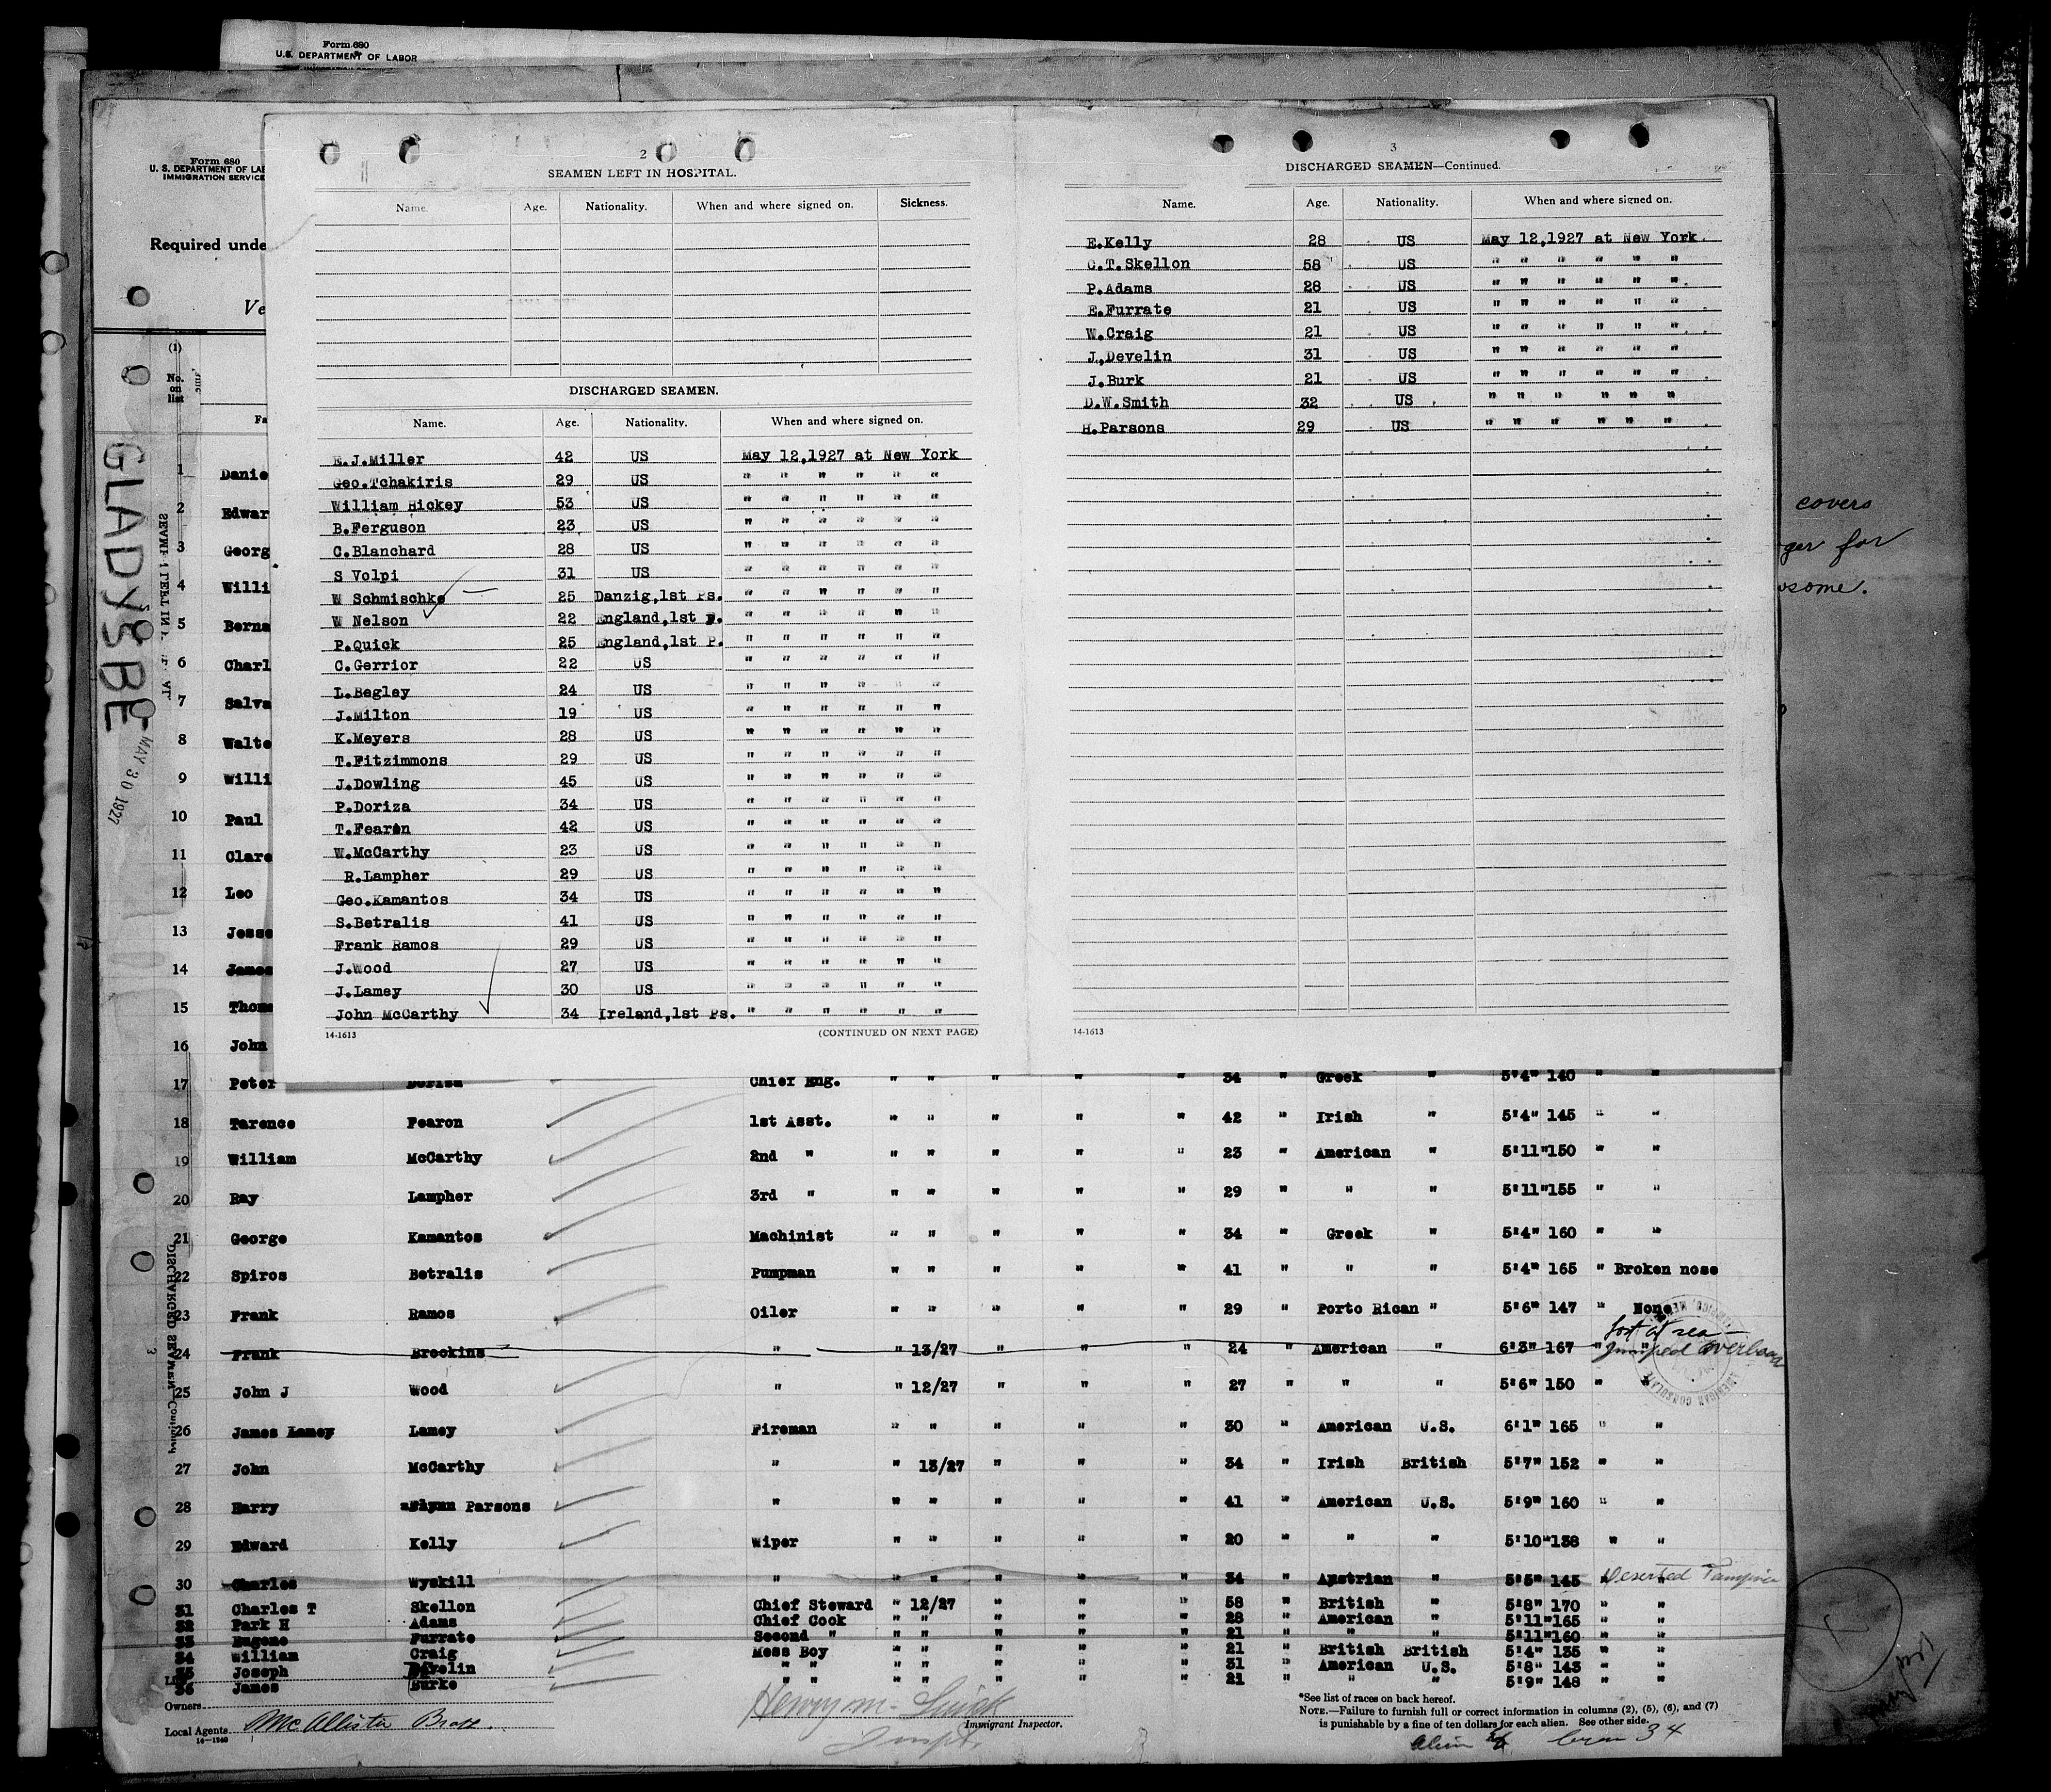 Form 680
U. S. DEPARTMENT OF LABOR
Form 680
U. S. DEPARTMENT OF LAB
IMMIGRATION SERVICE
Required unde
Ve
(1)
No. on list
Fa
GLADYSBE
MAY 30 1927
2
SEAMEN LEFT IN HOSPITAL.
Name. Age. Nationality. When and where signed on. Sickness.
DISCHARGED SEAMEN.
Name. Age. Nationality. When and where signed on.
E.J.Miller 42 US May 12,1927 at New York
Geo.Tchakiris 29 US " " " " " "
William Hickey 53 US " " " " " "
B.Ferguson 23 US " " " " " "
C.Blanchard 28 US " " " " " "
S Volpi 31 US " " " " " "
W Schmischke 25 Danzig,1st Ps. " " " " " "
W Nelson 22 England,1st P. " " " " " "
P.Quick 25 England,1st P. " " " " " "
C.Gerrior 22 US " " " " " "
L.Begley 24 US " " " " " "
J.Milton 19 US " " " " " "
K.Meyers 28 US " " " " " "
T.Fitzimmons 29 US " " " " " "
J.Dowling 45 US " " " " " "
P.Doriza 34 US " " " " " "
T.Fearon 42 US " " " " " "
W.McCarthy 23 US " " " " " "
R.Lampher 29 US " " " " " "
Geo.Kamantos 34 US " " " " " "
S.Betralis 41 US " " " " " "
Frank Ramos 29 US " " " " " "
J.Wood 27 US " " " " " "
J.Lamey 30 US " " " " " "
John McCarthy 34 Ireland,1st Ps. " " " " " "
14-1613 (CONTINUED ON NEXT PAGE)
3
DISCHARGED SEAMEN—Continued.
Name. Age. Nationality. When and where signed on.
E.Kelly 28 US May 12,1927 at New York.
C.T.Skellon 58 US " " " " " "
P.Adams 28 US " " " " " "
E.Furrate 21 US " " " " " "
W.Craig 21 US " " " " " "
J.Develin 31 US " " " " " "
J.Burk 21 US " " " " " "
D.W.Smith 32 US " " " " " "
H.Parsons 29 US " " " " " "
14-1613
covers
ger for
some.
1 Danie
2 Edwar
3 Georg
4 Willi
5 Berna
6 Charl
7 Salva
8 Walte
9 Willi
10 Paul
11 Clare
12 Leo
13 Jesse
14 James
15 Thoma
16 John
17 Peter Doriza Chief Eng. " " " " " 34 " Greek " 5'4" 140 " "
18 Tarence Fearon 1st Asst. " " " " " 42 " Irish " 5'4" 145 " "
19 William McCarthy 2nd " " " " " " 23 " American " 5'11" 150 " "
20 Ray Lampher 3rd " " " " " " 29 " " " 5'11" 155 " "
21 George Kamantos Machinist " " " " " 34 " Greek " 5'4" 160 " "
22 Spiros Betralis Pumpman " " " " " 41 " " " 5'4" 165 " Broken nose
23 Frank Ramos Oiler " " " " " 29 " Porto Rican " 5'6" 147 " None
lost at sea—
24 Frank Brockins " " 13/27 " " " 24 " American " 6'3" 167 " jumped overboard
25 John J Wood " " 12/27 " " " 27 " " " 5'6" 150 " "
26 James Lamey Lamey Fireman " " " " " 30 " American U.S. 6'1" 165 " "
27 John McCarthy " " 13/27 " " " 34 " Irish British 5'7" 152 " "
28 Harry Parsons " " " " " " 41 " American U.S. 5'9" 160 " "
29 Edward Kelly Wiper " " " " " 20 " " " 5'10" 138 " "
30 Charles Wyskill " " " " " " 34 " Austrian " 5'5" 145 " Deserted Tampico
31 Charles T Skellon Chief Steward " 12/27 " " " 58 " British " 5'8" 170 " "
32 Park H Adams Chief Cook " " " " " 28 " American " 5'11" 165 " "
33 Eugene Furrate Second " " " " " " 21 " " " 5'11" 160 " "
34 William Craig Mess Boy " " " " " 21 " British British 5'4" 135 " "
35 Joseph Develin " " " " " " " 31 " American U.S. 5'8" 143 " "
36 James Burke " " " " " " " 21 " " " 5'9" 148 " "
Owners
Local Agents McAllister Bros.
14—1240
Immigrant Inspector.
*See list of races on back hereof.
NOTE.—Failure to furnish full or correct information in columns (2), (5), (6), and (7)
is punishable by a fine of ten dollars for each alien. See other side.
Alien
Crew 34